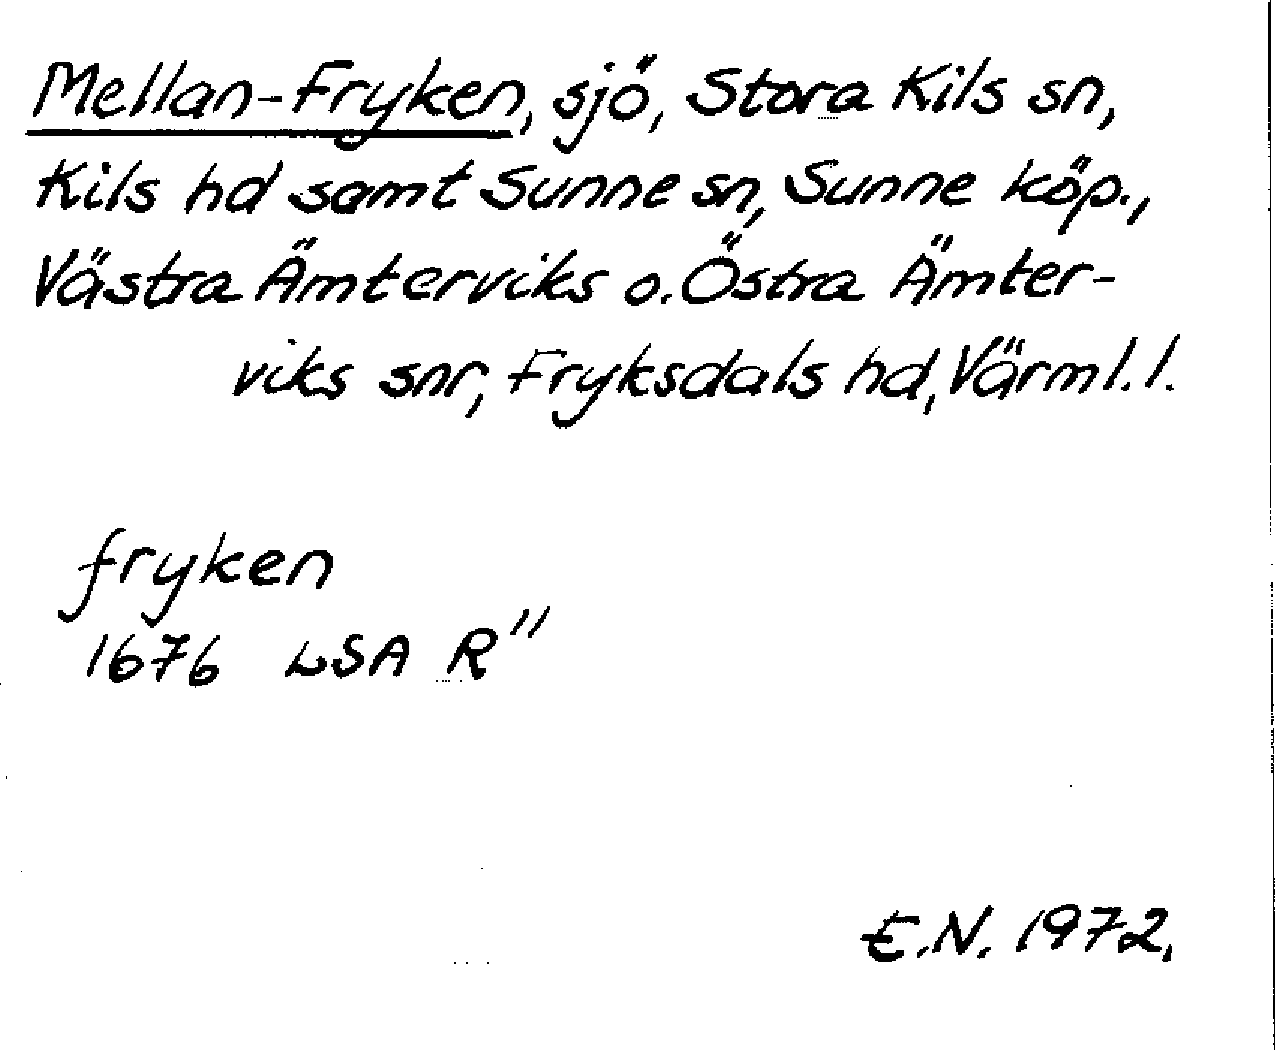 Mellan-Fryken, sjö, Stora Kils sn,
Kils hd samt Sunne sn, Sunne köp.,
Västra Ämterviks o. Östra Ämter-
viks snr, Fryksdals hd, Värml. l.
fryken
1676 LSA R"
E.N. 1972.